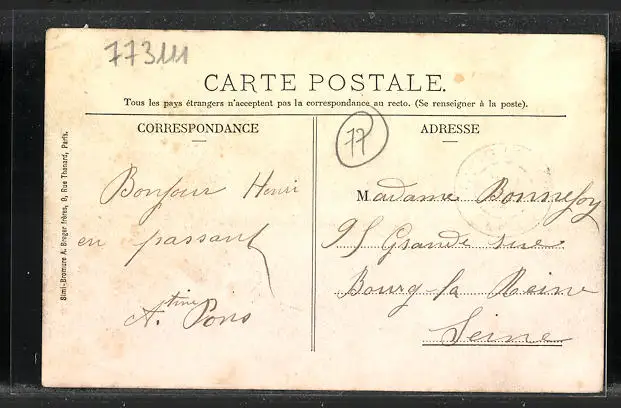 773111
CARTE POSTALE.
Tous les pays étrangers n'acceptent pas la correspondance au recto. (Se renseigner à la poste).
CORRESPONDANCE
77
ADRESSE
Bonjour Henri
en passant
A.tine Pons
Madame Bonnefoy
95 Grande rue
Bourg-la Reine
Seine
Simi-Bromure A. Breger frères, 9, Rue Thénard, Paris.